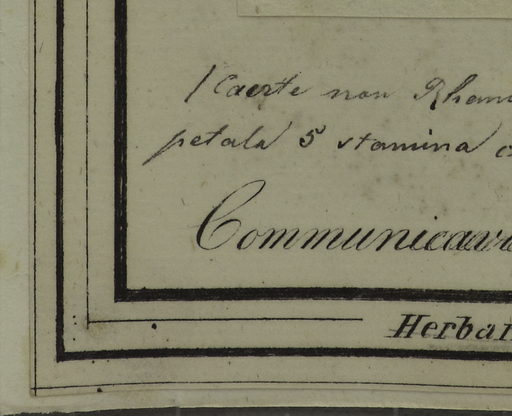 Certe non Rham
petala 5 stamina
Communicav
Herbar